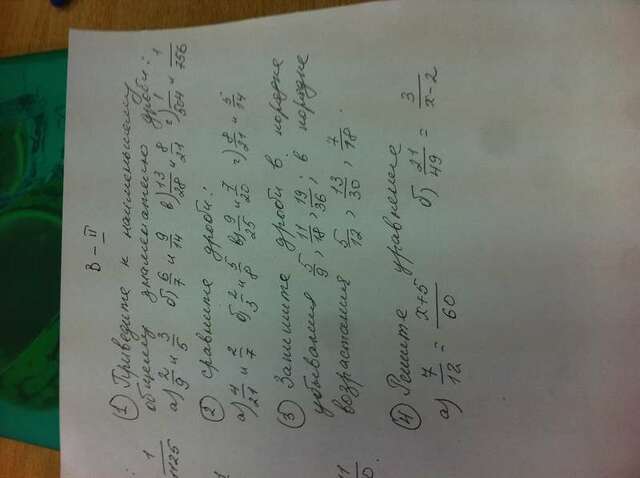 В – II
1 Приведите к наименьшему
общему знаменателю дроби:
а) 2/9 и 3/5 б) 6/7 и 9/14 в) 13/28 и 8/21 г) 1/504 и 1/756
2 Сравните дроби:
а) 4/21 и 2/7 б) 2/3 и 5/8 в) 9/25 и 7/20 г) 8/21 и 5/14
3 Запишите дроби в порядке
убывания 5/9, 11/18, 19/36; в порядке
возрастания 5/12, 13/30, 7/18.
4 Решите уравнение
а) 7/12 = x+5/60 б) 21/49 = 3/x-2
1/1125